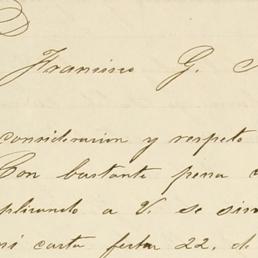 Francisco G.
consideracion y respeto
Con bastante pena
plicando a V. se sim
mi carta fecha 22. de